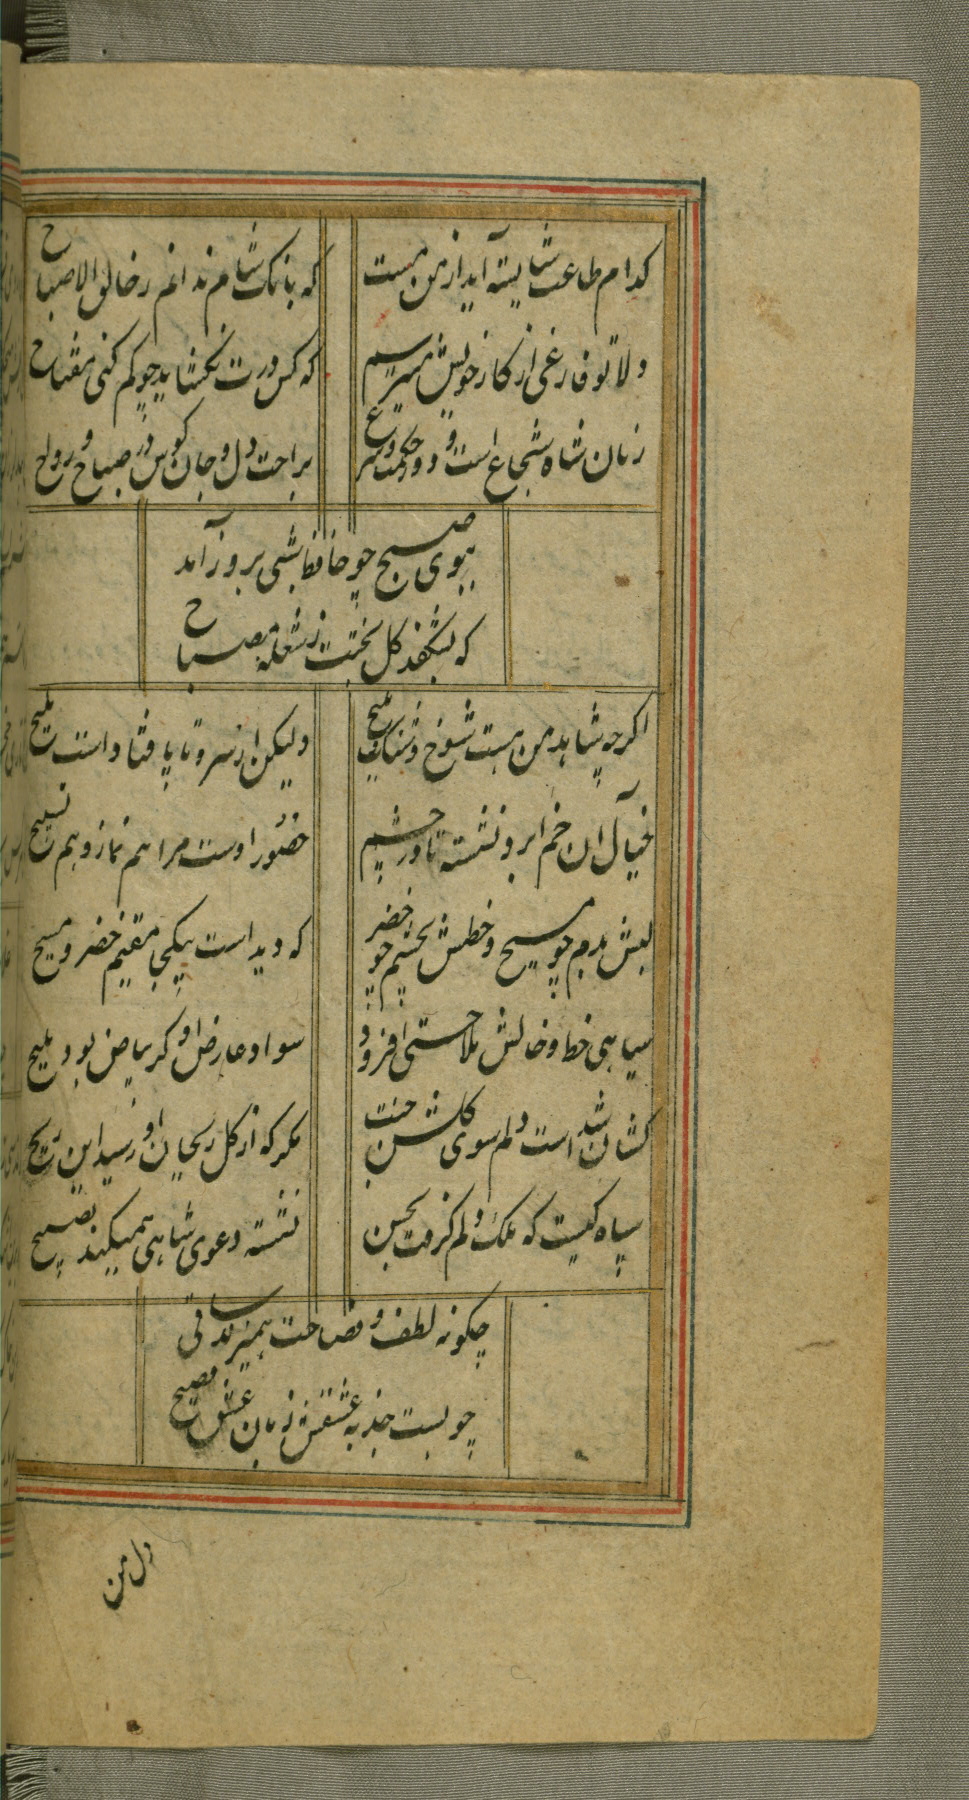 کدام طاعت شایسته آید از من مست
که بانک شام ندانم ز خالق الاصباح
دلا تو فارغی از کار خویش میترسم
که کس درت نکشاید چو کم کنی مفتاح
زمان شاه شجاع است و دور حکمت و شرع
براحت دل و جان کوش در صباح و رواح
ببوی صبح چو حافظ شبی بروز آمد
که بشکفد کل بختت ز شعله مصباح
اکرچه شاهد من هست شوخ و شنک و ملیح
ولیکن از سر و تا پا فتاده است ملیح
خیال آن خم ابرو نشسته تا در چشم
حضور اوست مرا هم نماز و هم تسبیح
لبش بدم چو مسیح و خطش بچشم چو خضر
که دیداست بیکجا مقیم خضر و مسیح
سیاهی خط و خالش ملاحتی افزود
سواد عارض او کر بیاض بود ملیح
کشان شد است دلم سوی کلشن جنت
مکر که از کل ریحان او رسید این ریح
سپاه کیست که ملک دلم کرفت بحسن
نشسته دعوی شاهی همیکند بصیح
چکونه لطف و فصاحت
چو بست جذبه عشقش زبان عشق فصیح
دل من